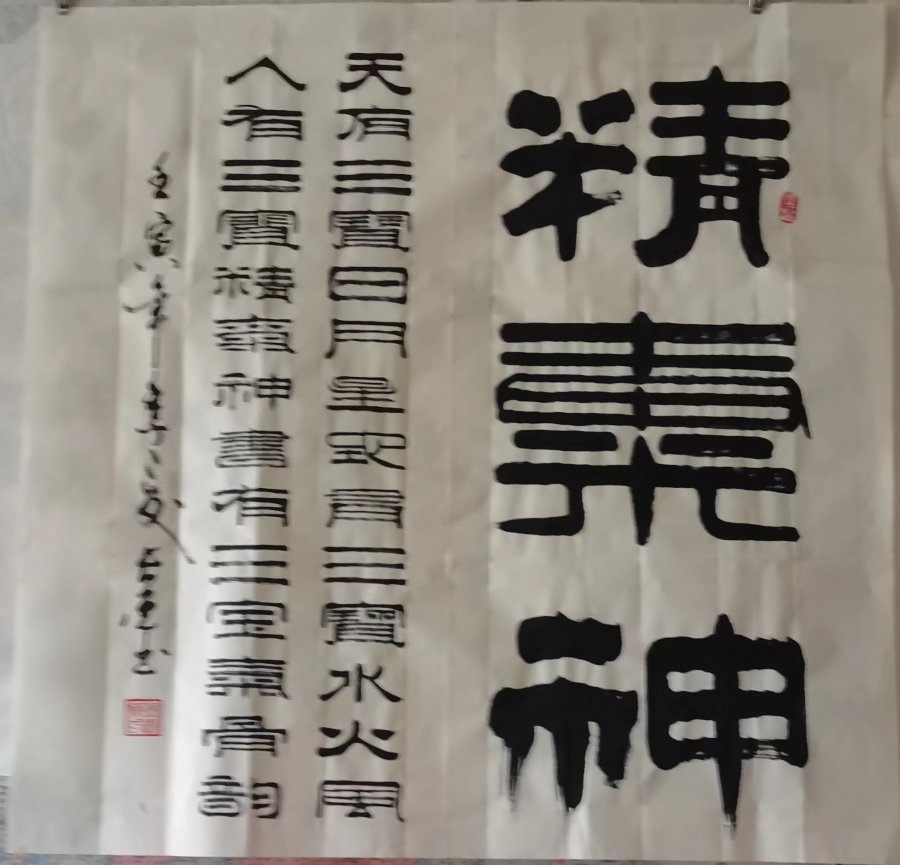 精氣神
天有三寶日月星地有三寶水火風
人有三寶精氣神書有三宝氣骨韵
壬寅年